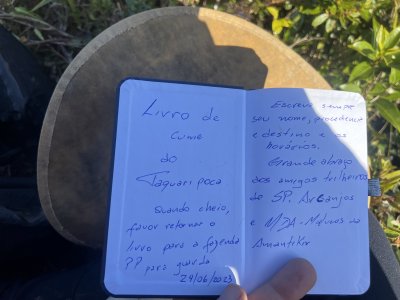 Livro de
Cume
do
Taquaripoca
Quando cheio,
favor retornar o
livro para a fazenda
PP para guarda
24/06/2023
Escreva sempre
seu nome, procedência
e destino e os
horários.
Grande abraço
aos amigos trilheiros
de SP. Arcanjos
e
da
Amantikir